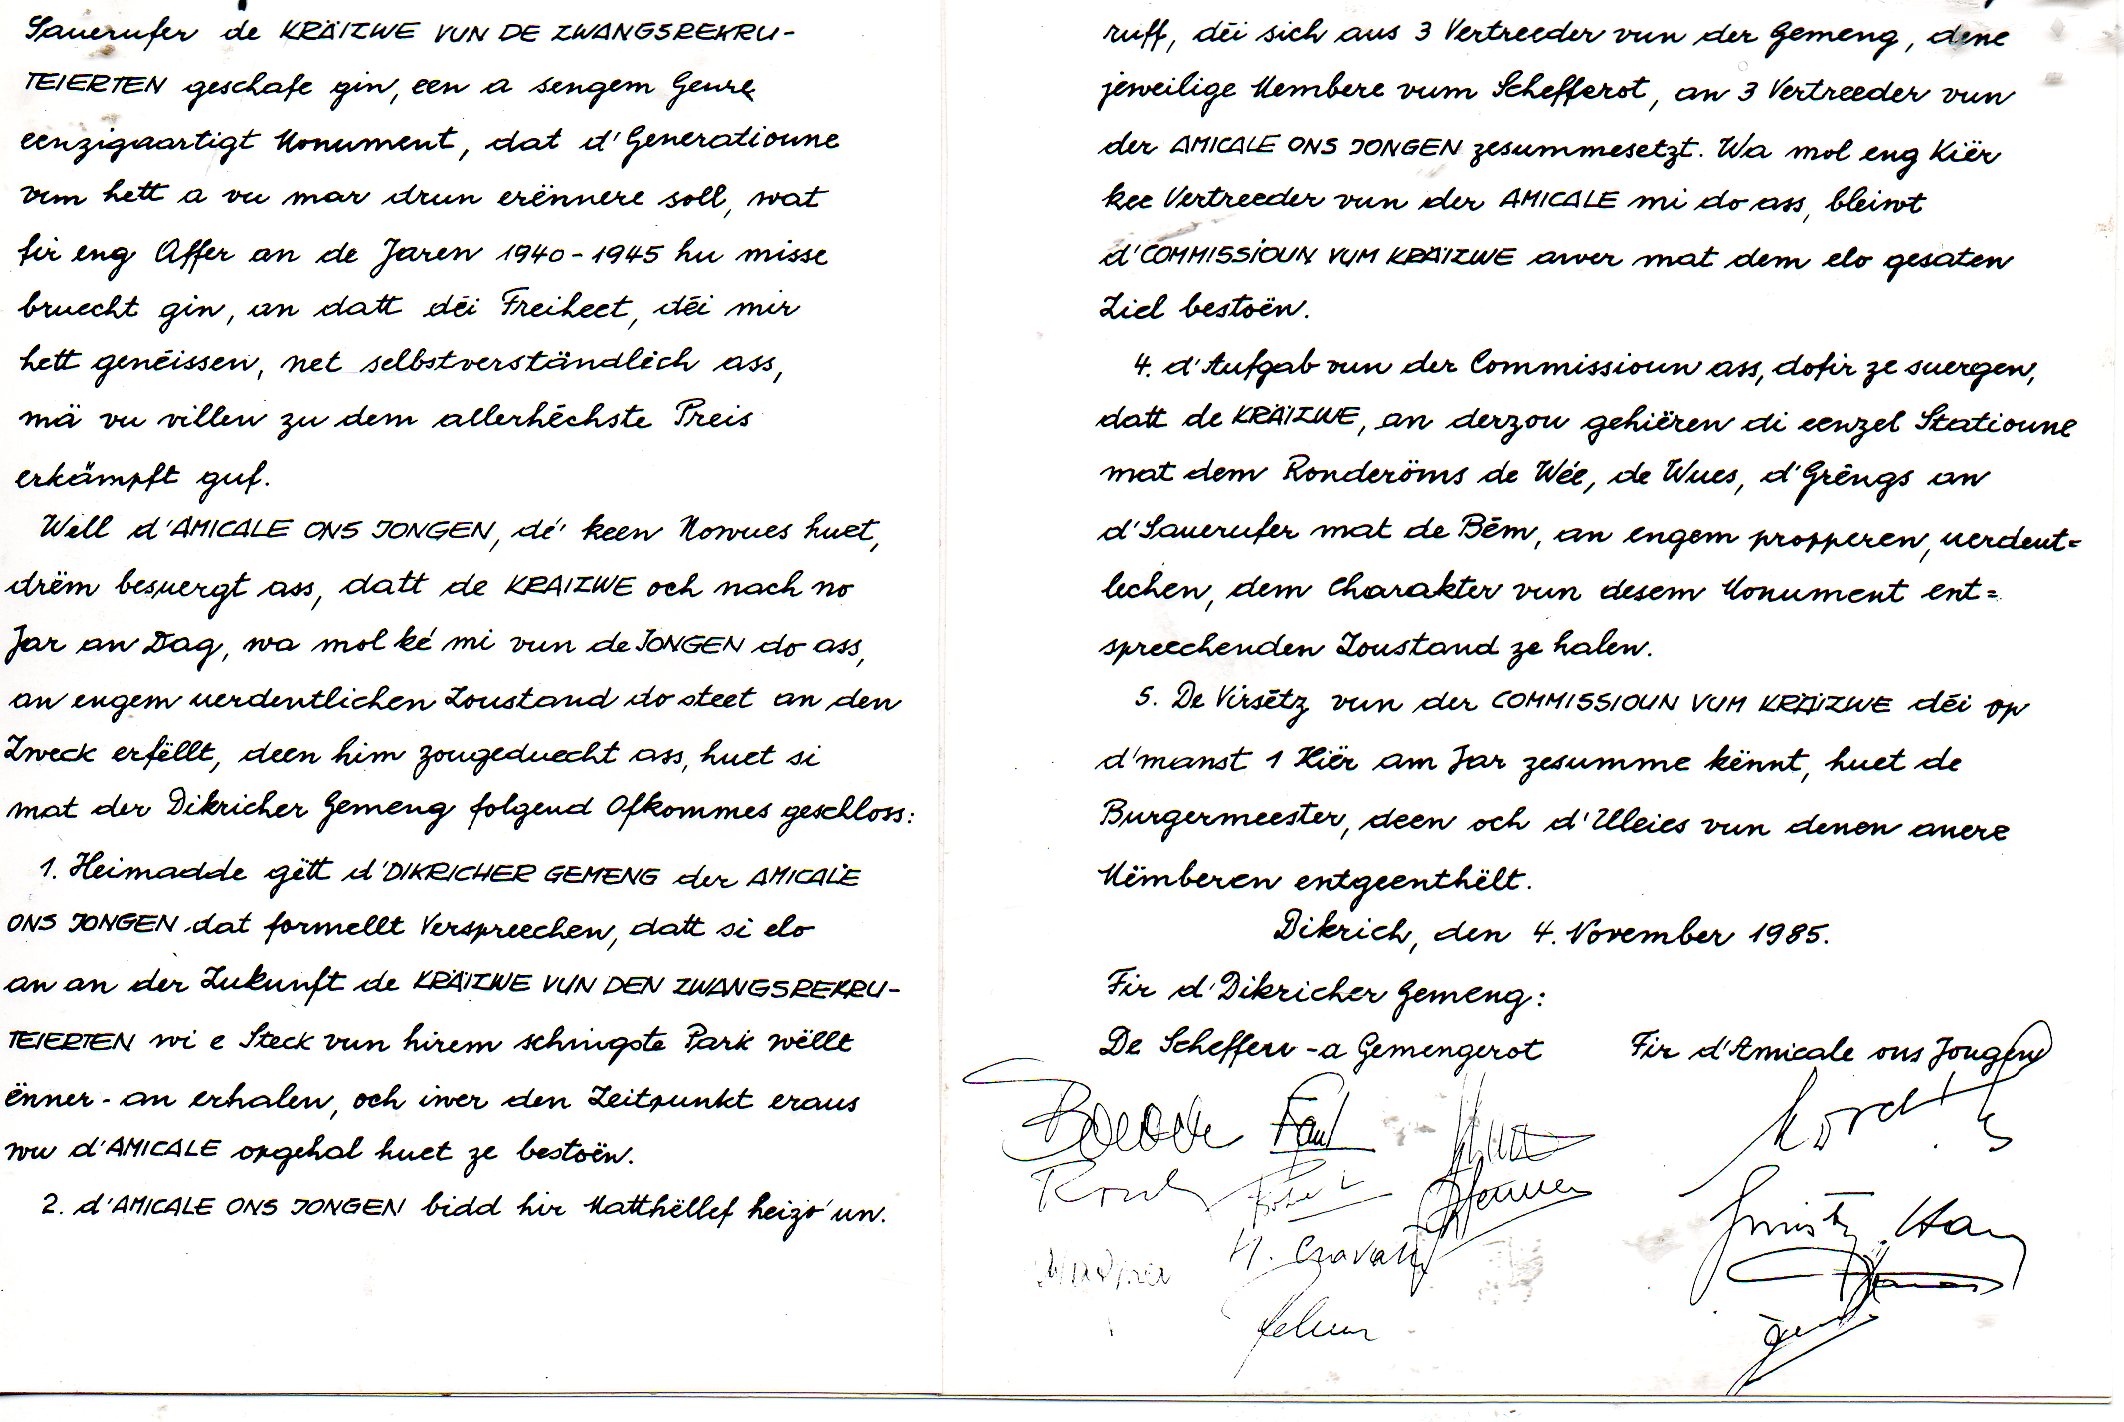 Sauerufer de KRÄIZWE VUN DE ZWANGSREKRU-
TEIERTEN geschafe gin, een a sengem Genre
eenzigaartigt Monument, dat d'Generatioune
vun hett a vu mar drun erënnere soll, wat
fir eng Affer an de Jaren 1940-1945 hu misse
bruecht gin, an datt déi Freiheet, déi mir
hett genéissen, net selbstverständlech ass,
mä vu villen zu dem allerhéchste Preis
erkämpft guf.
Well d'AMICALE ONS JONGEN, dé' keen Nowues huet,
drëm besuergt ass, datt de KRÄIZWE och nach no
Jar an Dag, wa mol ké mi vun de JONGEN do ass,
an engem uerdentlichen Zoustand do steet an den
Zweck erfëllt, deen him zougeduecht ass, huet si
mat der Dikricher Gemeng folgend Ofkommes geschloss:
1. Heimadde gëtt d'DIKRICHER GEMENG der AMICALE
ONS JONGEN dat formellt Verspreechen, datt si elo
an an der Zukunft de KRÄIZWE VUN DEN ZWANGSREKRU-
TEIERTEN wi e Steck vun hirem schingste Park wëllt
ënner-an erhalen, och iwer den Zeitpunkt eraus
wu d'AMICALE opgehal huet ze bestoën.
2. d'AMICALE ONS JONGEN bidd hir Matthëllef heizo' un.
ruff, déi sich aus 3 Vertreeder vun der Gemeng, dene
jeweilige Membere vum Schefferot, an 3 Vertreeder vun
der AMICALE ONS JONGEN zesummesetzt. Wa mol eng Kiër
kee Vertreeder vun der AMICALE mi do ass, bleiwt
d'COMMISSIOUN VUM KRÄIZWE awer mat dem elo gesaten
Ziel bestoën.
4. d'Aufgab vun der Commissioun ass, dofir ze suergen,
datt de KRÄIZWE, an derzou gehiëren di eenzel Statioune
mat dem Ronderöms de Wée, de Wues, d'Gréngs an
d'Sauerufer mat de Bém, an engem propperen, uerdent=
lechen, dem Charakter vun desem Monument ent=
spreechenden Zoustand ze halen.
5. De Virsétz vun der COMMISSIOUN VUM KRÄIZWE déi op
d'manst 1 Kiër am Jar zesumme kënnt, huet de
Burgermeester, deen och d'Uleies vun denen anere
Mëmberen entgeenthëlt.
Dikrich, den 4. November 1985.
Fir d'Dikricher Gemeng:
De Scheffen-a Gemengerot
Fir d'Amicale ons Jongen